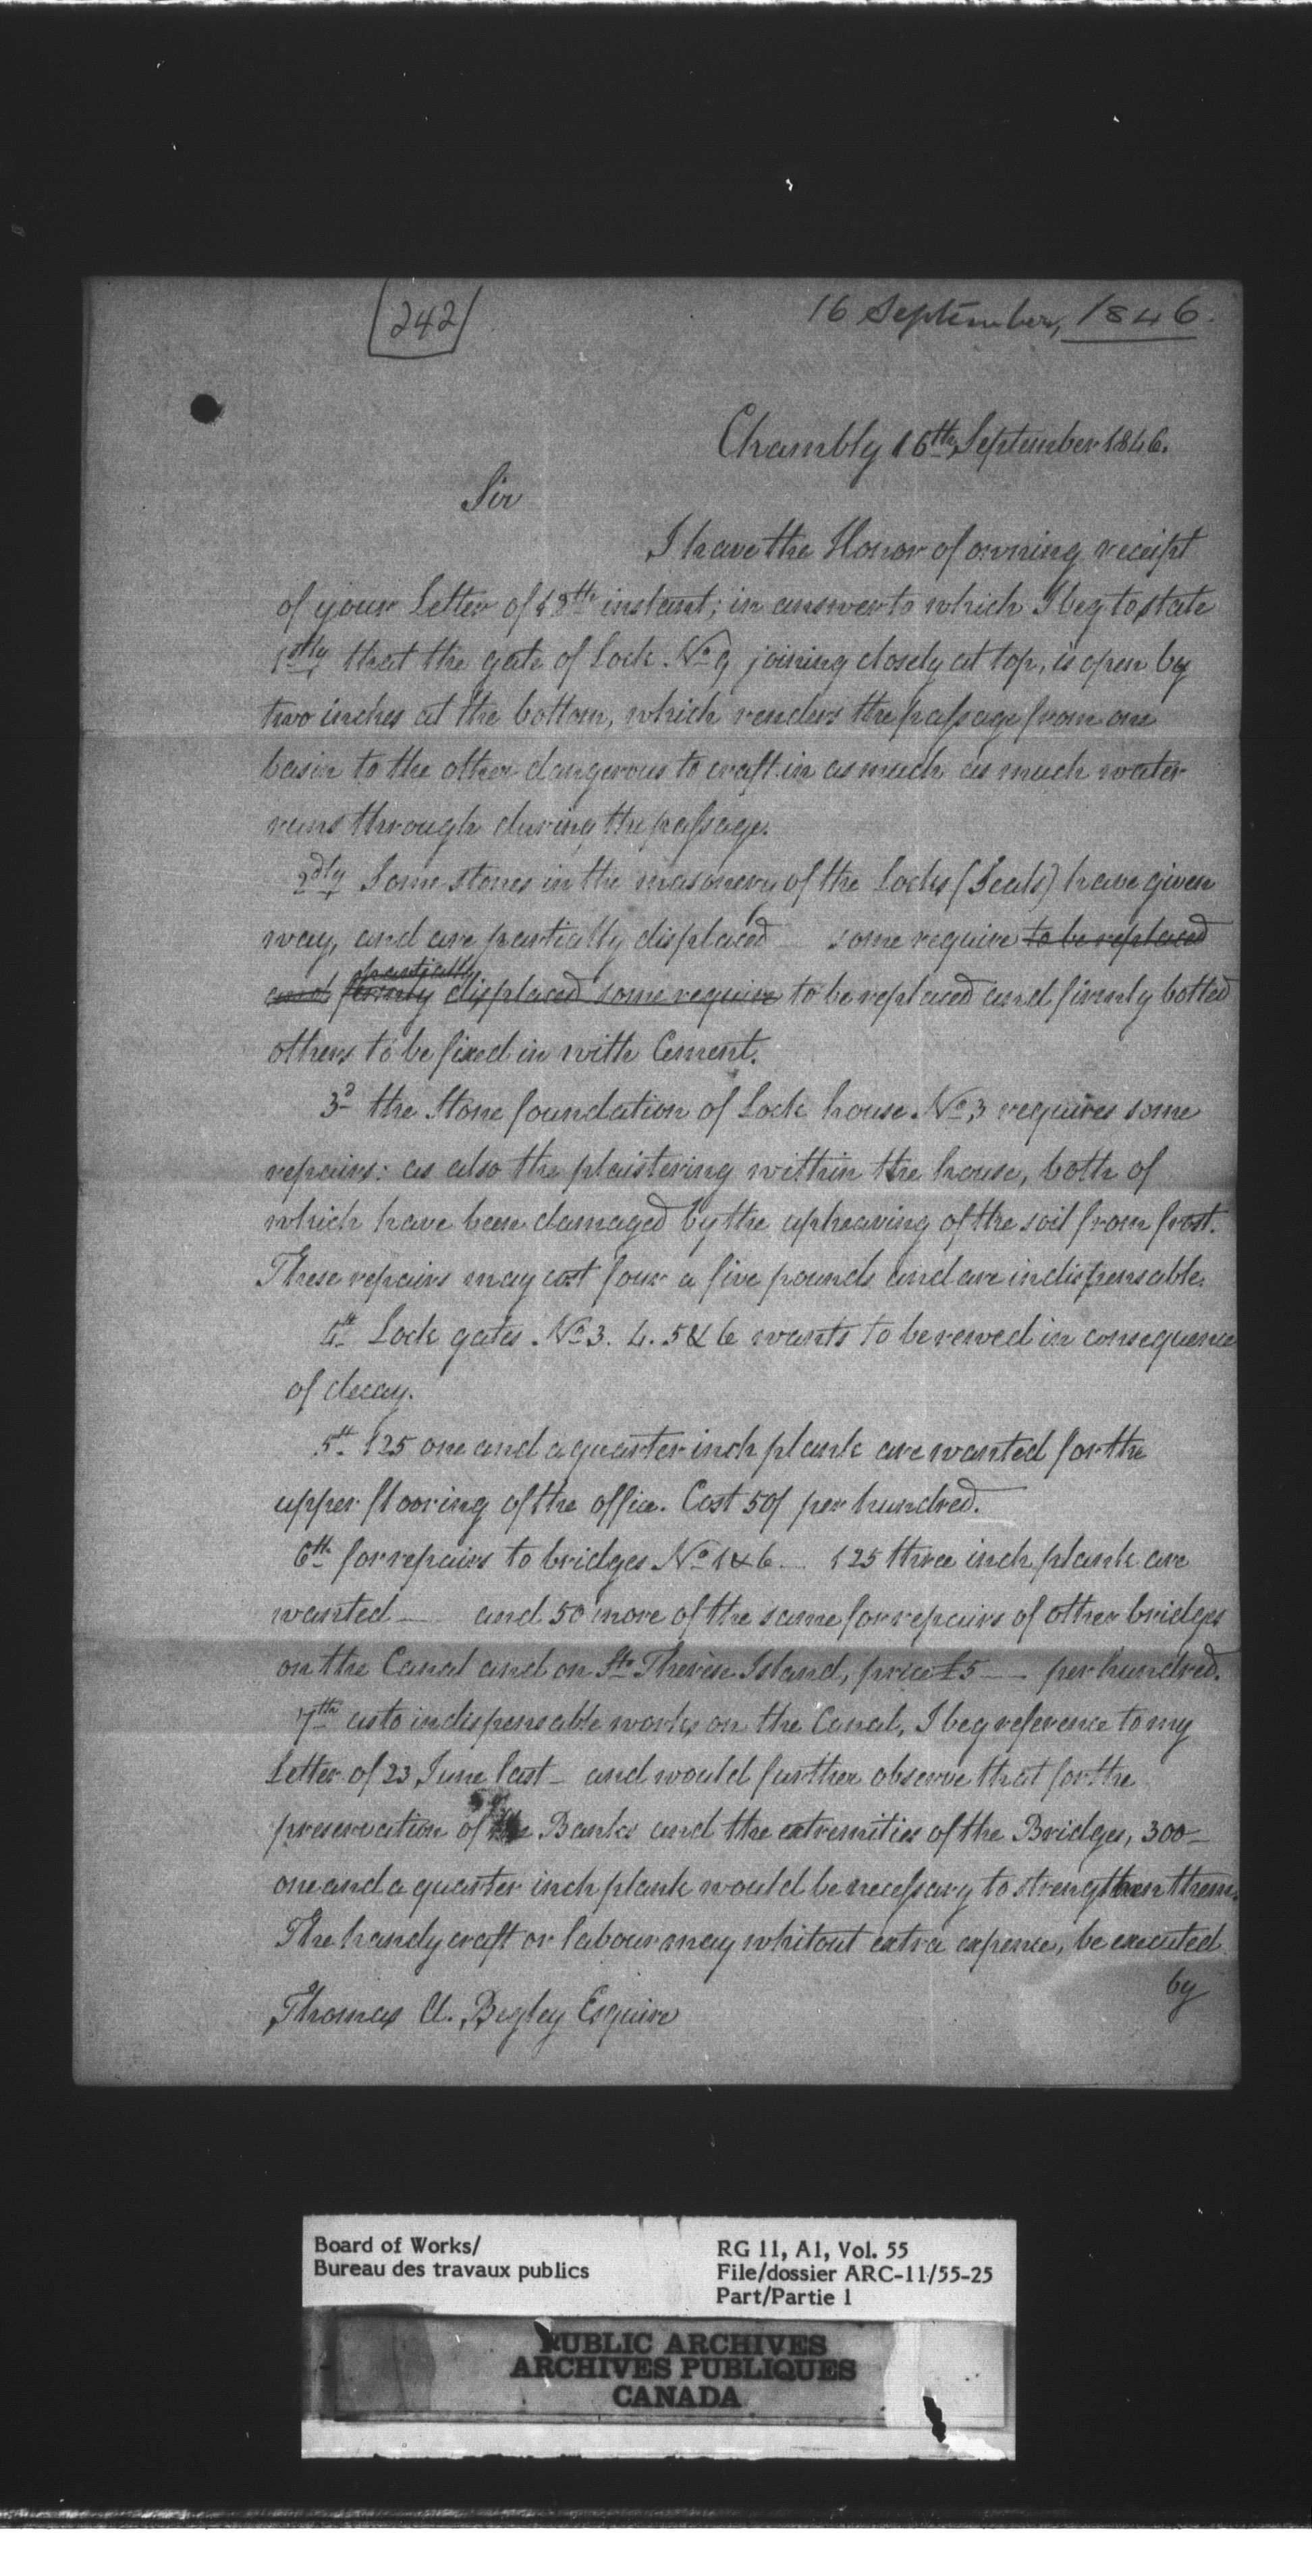 242
16 September, 1846.
Chambly 16th September 1846.
Sir
I have the Honor of owning receipt
of your Letter of 18th instant; in answer to which I beg to state
1stly that the gate of Lock No 9 joining closely at top, is open by
two inches at the bottom, which renders the passage from one
basin to the other dangerous to craft in as much as much water
runs through during the passage.
2dly Some stones in the masonery of the Locks (Seals) have given
way, and are partially displaced – some require to be replaced
partially
and firmly displaced some require to be replaced and firmly botted
others to be fixed in with Cement.
3d the Stone foundation of Lock house No 3 requires some
repairs: as also the plaistering within the house, both of
which have been damaged by the upheaving of the soil from frost.
These repairs may cost four a five pounds and are indispensable.
4th Lock gates No 3. 4. 5 & 6 wants to be rewed in consequence
of decay.
5th 125 one and a quarter inch plank are wanted for the
upper flooring of the office. Cost 50/ per hundred.
6th for repairs to bridges No 1 & 6 – 125 three inch plank are
wanted – and 50 more of the same for repairs of other bridges
on the Canal and on Ste Therèse Island, price £5 – per hundred.
7th as to indispensable works on the Canal, I beg reference to my
Letter of 23 June last – and would further observe that for the
preservation of the Banks and the extremities of the Bridges, 300 –
one and a quarter inch plank would be necessary to strengthen them.
The handy craft or labour may whitout extra expense, be executed
by
Thomas A. Begley Esquire
Board of Works/
Bureau des travaux publics
RG 11, A1, Vol. 55
File/dossier ARC-11/55-25
Part/Partie 1
PUBLIC ARCHIVES
ARCHIVES PUBLIQUES
CANADA